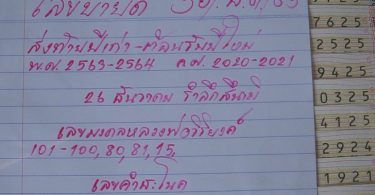 เลขบาบดี
ส่งท้ายปีเก่า-ต้อนรับปีใหม่
พ.ศ.2563-2564 ค.ศ.2020-2021
26 ธันวาคม รำลึกสึนามิ
เลขมงคลหลวงพ่อวิริยงค์
101-100,80,81,15
เลขคำชะโนด
7625
2525
9425
0325
4125
2924
1921